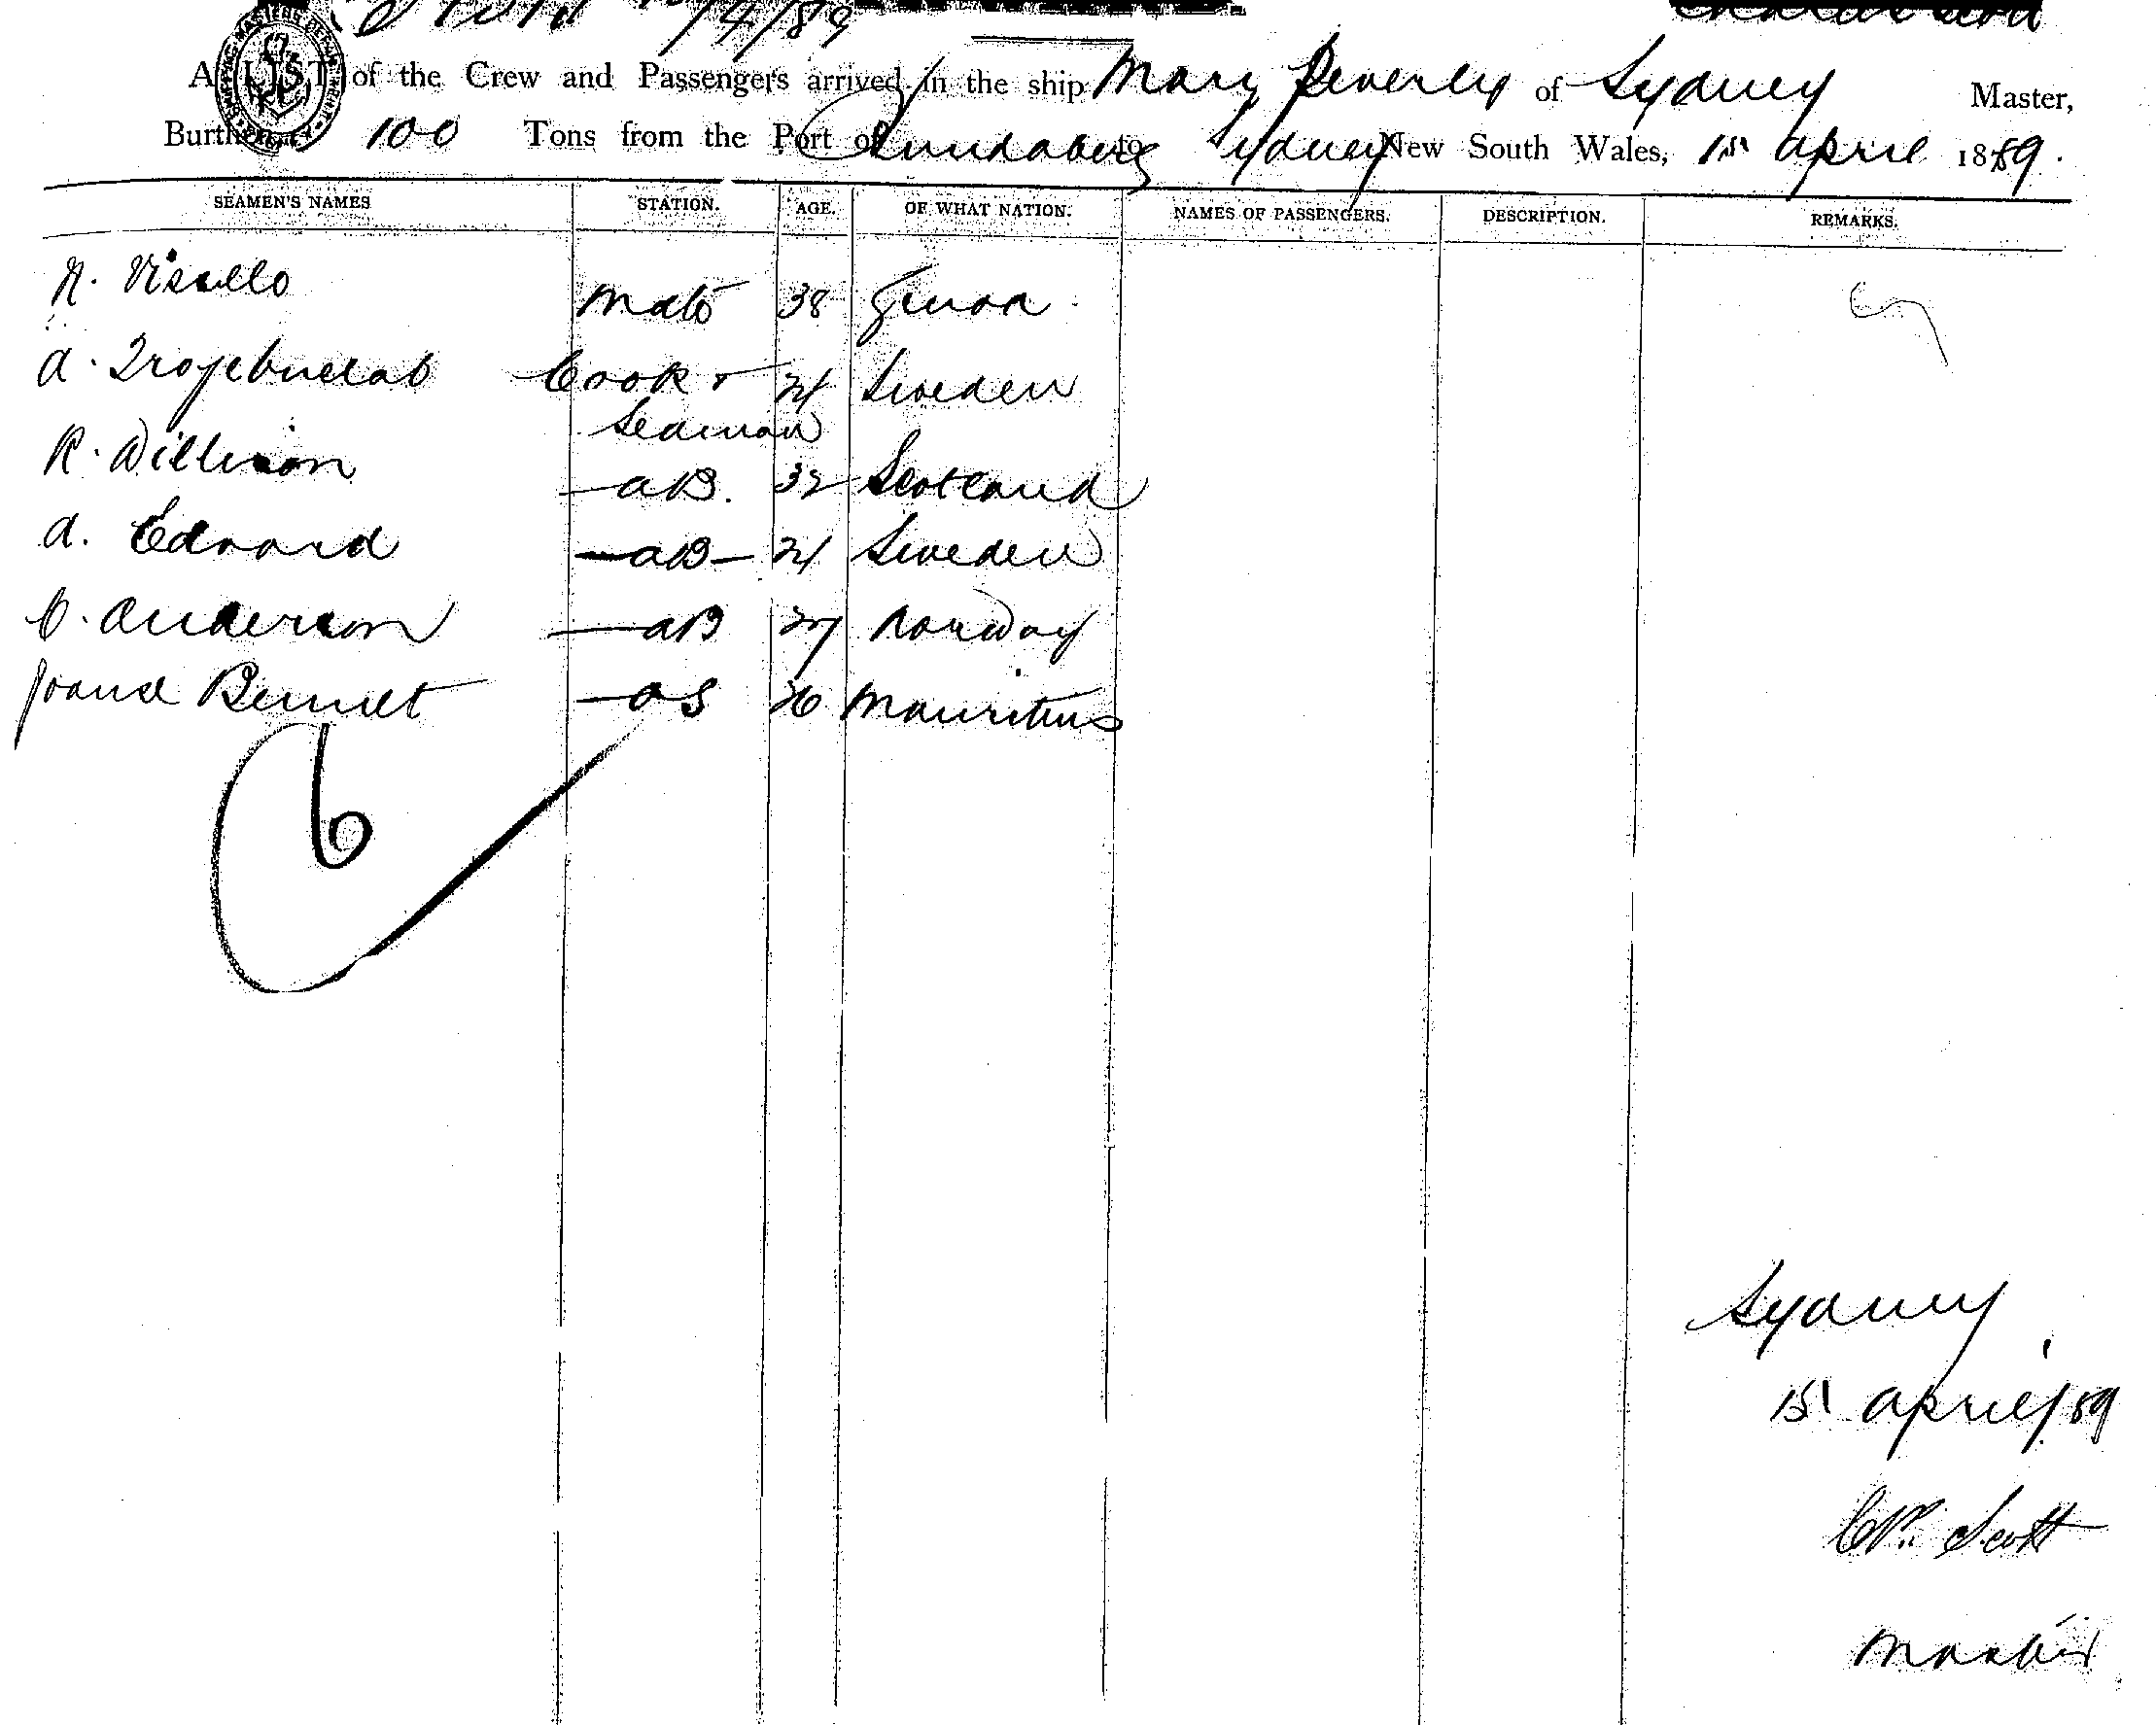 /4/89
A LIST of the Crew and Passengers arrived in the ship Mary Peverley of Sydney Master,
Burthen 100 Tons from the Port of Bundaberg to Sydney New South Wales, 1st April 1889.
SEAMEN'S NAMES STATION. AGE. OF WHAT NATION. NAMES OF PASSENGERS. DESCRIPTION. REMARKS.
Mate 38 Genoa
A. Cook & 24 Sweden
Seaman
R. Willison - AB. 32 Scotland
A. Edward - AB - 24 Sweden
C. Anderson - AB 27 Norway
Bennet - OS 26 Mauritius
6
Sydney
1st April/89
Scott
Master